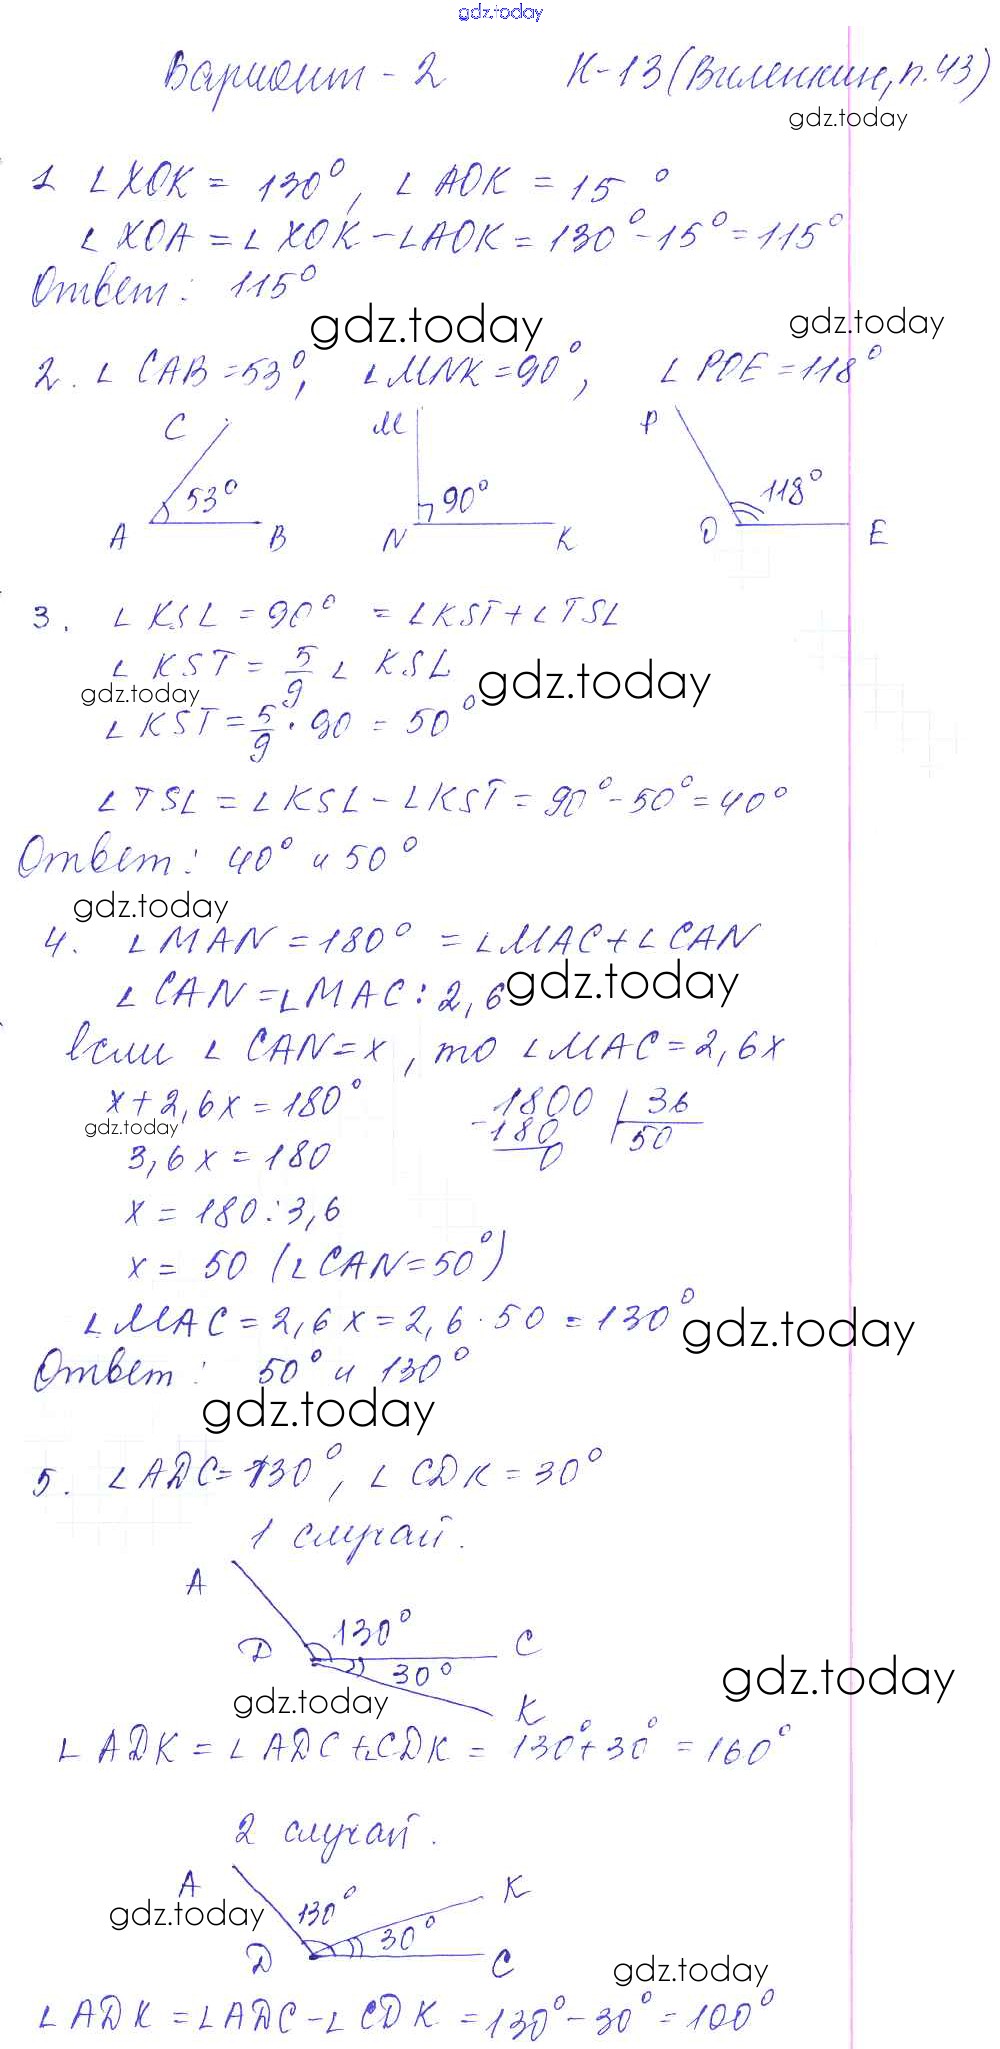 gdz.today
Вариант - 2 К-13 (Виленкин, п.43)
gdz.today
1 ∠XOK = 130°, ∠AOK = 15°
∠XOA = ∠XOK - ∠AOK = 130° - 15° = 115°
Ответ: 115°
gdz.today gdz.today
2. ∠CAB = 53°, ∠MNK = 90°, ∠POE = 118°
C M P
53° 90° 118°
A B N K O E
3. ∠KSL = 90° = ∠KST + ∠TSL
∠KST = 5/9 ∠KSL
gdz.today gdz.today
∠KST = 5/9 · 90 = 50°
∠TSL = ∠KSL - ∠KST = 90° - 50° = 40°
Ответ: 40° и 50°
gdz.today
4. ∠MAN = 180° = ∠MAC + ∠CAN
∠CAN = ∠MAC : 2,6
gdz.today
если ∠CAN = x, то ∠MAC = 2,6x
x + 2,6x = 180° 1800 | 36
gdz.today -180 50
3,6x = 180 0
x = 180 : 3,6
x = 50 (∠CAN = 50°)
∠MAC = 2,6x = 2,6 · 50 = 130°
gdz.today
Ответ: 50° и 130°
gdz.today
5. ∠ADC = 130°, ∠CDK = 30°
1 случай.
A
130°
D C
30°
gdz.today gdz.today
K
∠ADK = ∠ADC + ∠CDK = 130° + 30° = 160°
2 случай.
A K
gdz.today 130°
30°
D C
gdz.today
∠ADK = ∠ADC - ∠CDK = 130° - 30° = 100°